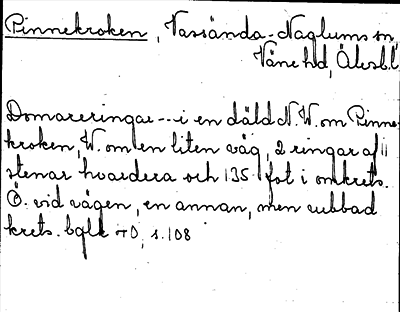 Pinnekroken, Vassända-Naglums sn
Väne hd, Älvsb.l.
Domareringar --- i en däld N.W. om Pinne-
kroken, W. om en liten väg, 2 ringar af 11
stenar hvardera och 135 fot i omkrets.
Ö. vid vägen, en annan, men rubbad
krets. bglk 40, s. 108